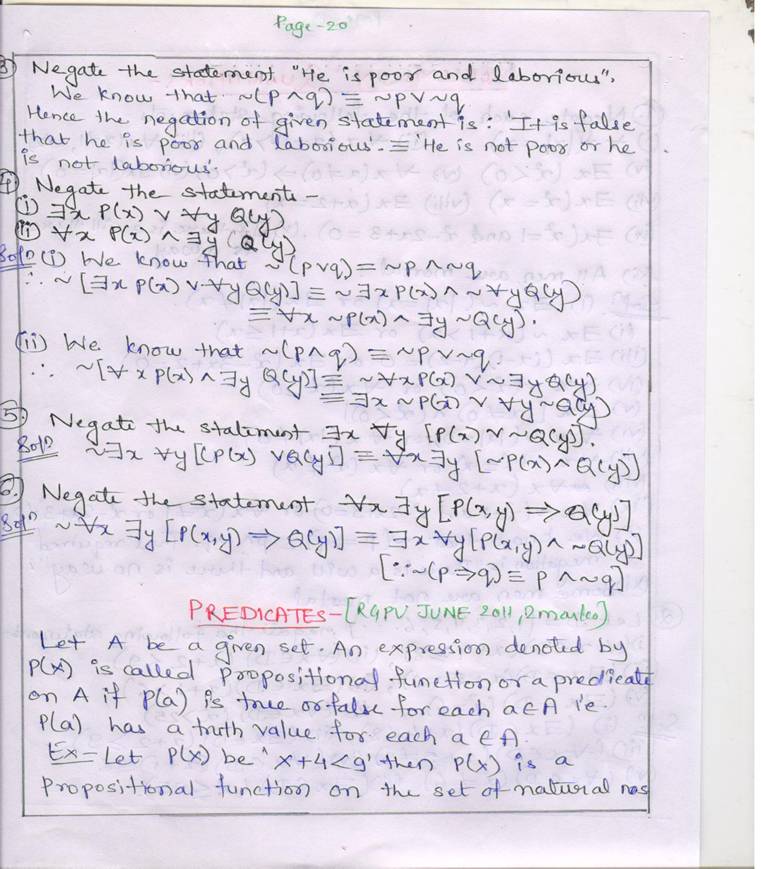 Page-20
3) Negate the statement "He is poor and laborious".
We know that ~(p∧q) ≡ ~p∨~q
Hence the negation of given statement is: 'It is false
that he is poor and laborious'. ≡ 'He is not poor or he
is not laborious'.
4) Negate the statements-
(i) ∃x P(x) ∨ ∀y Q(y)
(ii) ∀x P(x) ∧ ∃y Q(y)
Solⁿ (i) We know that ~(p∨q) ≡ ~p∧~q
∴ ~[∃x P(x) ∨ ∀y Q(y)] ≡ ~∃x P(x) ∧ ~∀y Q(y)
≡ ∀x ~P(x) ∧ ∃y ~Q(y).
(ii) We know that ~(p∧q) ≡ ~p∨~q
∴ ~[∀x P(x) ∧ ∃y Q(y)] ≡ ~∀x P(x) ∨ ~∃y Q(y)
≡ ∃x ~P(x) ∨ ∀y ~Q(y)
5. Negate the statement ∃x ∀y [P(x) ∨ ~Q(y)].
Solⁿ ~∃x ∀y [(P(x) ∨ Q(y)] ≡ ∀x ∃y [~P(x) ∧ Q(y)]
6. Negate the statement ∀x ∃y [P(x,y) ⇒ Q(y)]
Solⁿ ~∀x ∃y [P(x,y) ⇒ Q(y)] ≡ ∃x ∀y [P(x,y) ∧ ~Q(y)]
[∵ ~(p⇒q) ≡ p ∧ ~q]
PREDICATES-[RGPV JUNE 2011, 2 marks]
Let A be a given set. An expression denoted by
P(x) is called Propositional function or a predicate
on A if P(a) is true or false for each a∈A i.e.
P(a) has a truth value for each a∈A.
Ex- Let P(x) be 'x+4<9' then P(x) is a
Propositional function on the set of natural nos